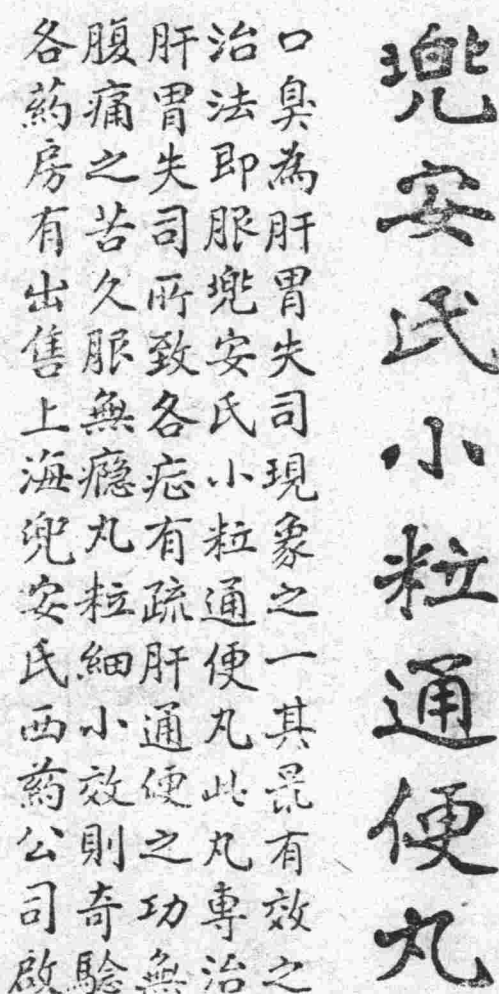 兜安氏小粒通便丸
口臭為肝胃失司現象之一其最有效之
治法即服兜安氏小粒通便丸此丸專治
肝胃失司所致各症有疏肝通便之功無
腹痛之苦久服無癮丸粒細小效則奇驗
各药房有出售上海兜安氏西药公司啟